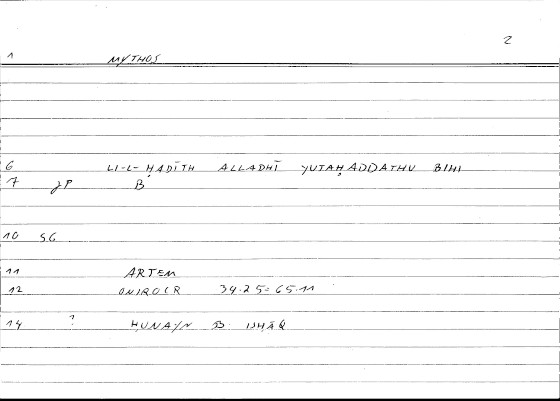 2
1 MYTHOS
6 LI-L-ḤADĪTH ALLADHĪ YUTAḤADDATHU BIHI
7 JP B
10 SG
11 ARTEM
12 ONIROCR 34.25 = 65.11
14 ? ḤUNAYN B. ISḤĀQ